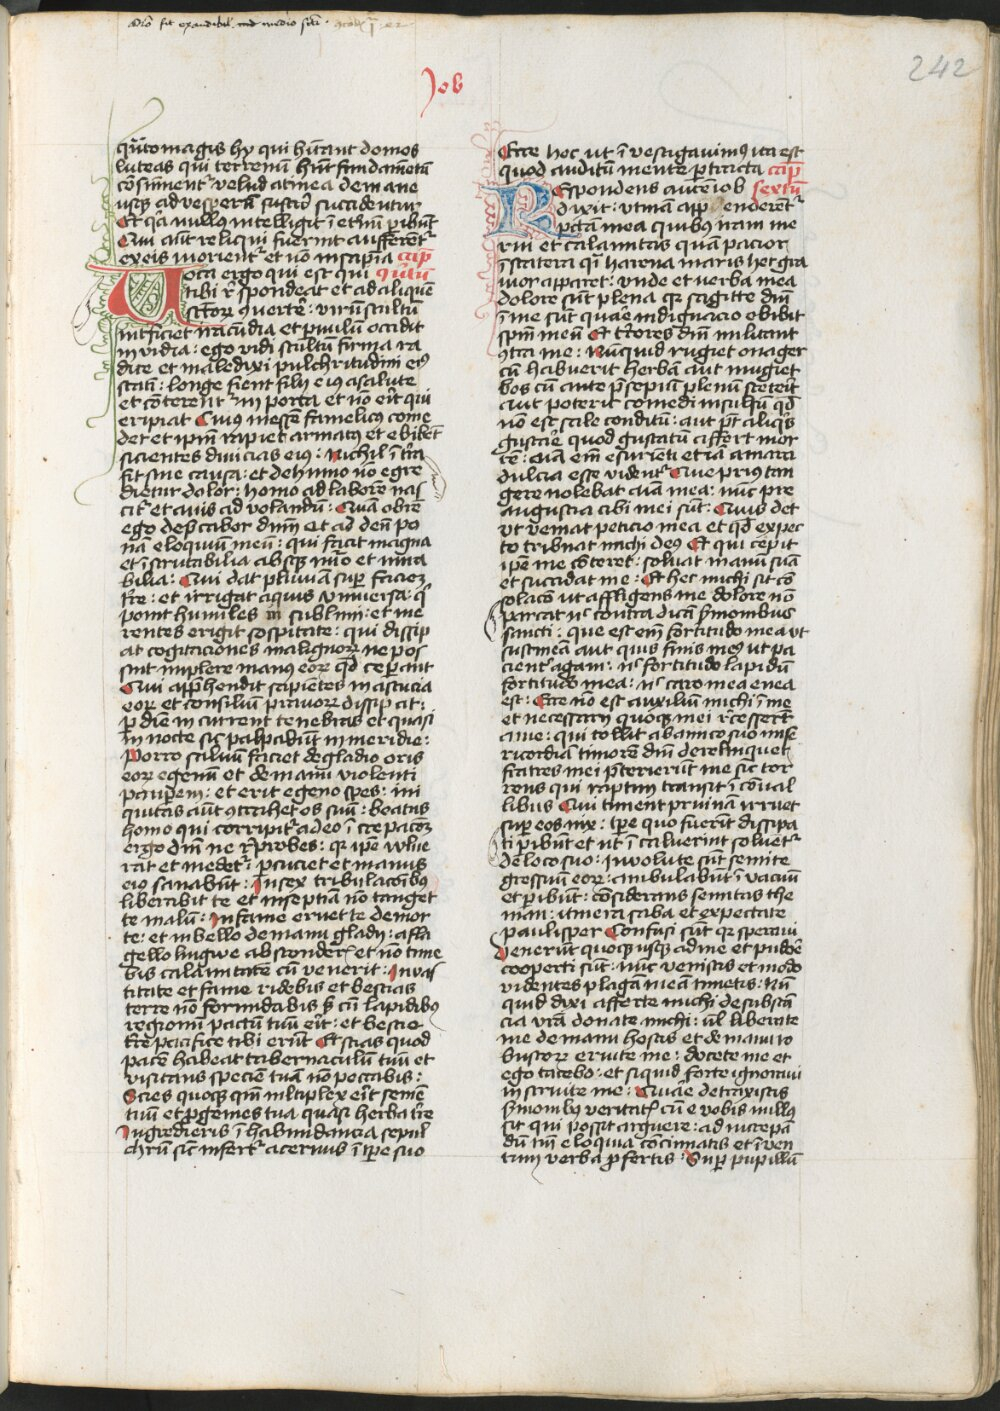 Job
242
qūtomagis hy qui hītant domos
luteas qui terrenū hnt fundametū
cōsumentᷣ velud atinea de mane
usqꝫ ad vesperā succidentur
Et qꝛ nullus intelligit ī eternū pibunt
Qui aūt reliqui fuerint aufferentᷣ
ex eis morientᷣ et nō in sapīa cap̄
Voca ergo qui est qui quītū
tibi rn̄spondeat et ad aliquē
sctōꝝ ꝯuerte᷑: virū stultū
interficiet iracūdia et pvulū occidit
invidia: ego vidi stultū firma ra
dice et maledixi pulchritudini eiꝰ
statī: longe fient filij eiꝰ a salute
et cōterentᷣ in porta et nō erit qui
eripiat Cuius messē famelicꝰ come
det et ipm̄ rapiet armatꝰ et ebibēt
sicientes divicias eiꝰ: Nichil ī trā
fit sine causa: et de humo nō egre
dietur dolor: homo ad laborē nas
citᷣ et auis ad volandū: Quā obrē
ego dep̄cabor dnm̄ et ad deū po
nā eloquiū meū: qui facit magna
et īscrutabilia absqꝫ nūo et mira
bilia: Qui dat pluuiā sup faciem
tre: et irrigat aquis vniuersa: qͥ
ponit humiles in sublimi: et me
rentes erigit sospitate: qui dissip
at cogitaciones malignoꝝ ne pos
sint implere manus eoꝝ qd ceperant
Qui app̄hendit sapiētes in astucia
eoꝝ et consiliū prauoꝝ dissipat:
p diē incurrent tenebras et quasi
in nocte sic palpabūt in meridie:
Porro saluū faciet de gladio oris
eoꝝ egenū et de manu violenti
paupem: et erit egeno spes: ini
quitas aūt ꝯtrahet os suū: beatus
homo qui corripitᷣ a deo ī crepacōeꝫ
ergo dnī ne rep̄robes: qꝛ ipe vulne
rat et medetᷣ: pcuciet et manus
eiꝰ sanabūt: In sex tribulacōibꝰ
liberabit te et in septīa nō tanget
te malū: In fame eruet te de mor
te: et in bello de manu gladij: a fla
gello lingwe absconderis et nō time
bis calamitatē cū venerit: In vas
titate et fame ridebis et bestias
terre nō formidabis ſꝫ cū lapidibꝰ
regionū pactū tuū erit: et bestie
tre pacifice tibi erūt Et scias quod
pacē habeat tabernaculū tuū et
visitans speciem tuā nō peccabis:
Scies quoqꝫ qm̄ multiplex erit semē
tuū et pgenies tua quasi herba tre
Ingredieris ī habundancia sepul
chrū sic infertᷣ aceruus ī tpe suo
Ecce hoc ut ī vestigauimꝰ ita est
quod auditū mente ptracta cap̄
Respondens autē iob sextū
dixit: vtinā app enderentᷣ
pctā mea quibꝰ iram me
rui et calamitas quā pacior
ī statera qͣ harena maris hec gra
uior apparet: vnde et verba mea
dolore sūt plena qꝛ sagitte dnī
ī me sūt quaꝝ indignacio ebibit
spm̄ meū Et tōres dnī militant
ꝯtra me: Nūquid rugiet onager
cū habuerit herbā aut mugiet
bos cū ante p̄sepiū plenū steterit
aut poterit comedi insulsū qd
nō est sale conditū: aut pt aliqͥs
gustare quod gustatū affert mor
tē: aīa em̄ esurieti etiā amara
dulcia esse videntᷣ Que priꝰ tan
gere nolebat aīa mea: nūc pre
angustia cibi mei sūt: Quis det
vt veniat peticio mea et qd expec
to tribuat michi deꝰ Et qui cepit
ipe me cōteret: soluat manū suā
et succidat me: Et hec michi sit cō
solacō ut affligens me dolore nō
parcat nec contradicā smonibus
sancti: que est em̄ fortitudo mea ut
sustineā aut quis finis meꝰ ut pa
cientᷣ agam: nec fortitudo lapidū
fortitudo mea: nec caro mea enea
est: Ecce nō est auxiliū michi ī me
et necessarij quoqꝫ mei rcesserūt
a me: qui tollit ab amico suo mise
ricordiā timorē dnī derelinquet
fratres mei pterierūt me sic tor
rens qui raptim transit ī conual
libus Qui timent pruinā irruet
sup eos nix: tpe quo fuerīt dissipa
ti pibūt et ut ī caluerint soluentᷣ
de loco suo: Inuolute sūt semite
gressuū eoꝝ: ambulabūt ī vacuū
et pibunt: cōsiderate semitas the
man: itinera saba et expectate
paulisper Confusi sūt qꝛ speraui
Venerūt quoqꝫ usqꝫ ad me et pudōre
cooperti sūt: nūc venistis et modo
videntes plagā meā timetis: Nū
quid dixi afferte michi de substā
cia vrā donate michi: ul liberate
me de manu hostis et de manu ro
bustoꝝ eruite me: docete me et
ego tacebo: et siquid forte ignoraui
instruite me: Quare detraxistis
smonibꝰ veritatꝭ cū e vobis nullꝰ
sit qui possit arguere: ad increpā
dū tm̄ eloquia cōcinnatis et ī ven
tum verba pfertis: Sup pupillū